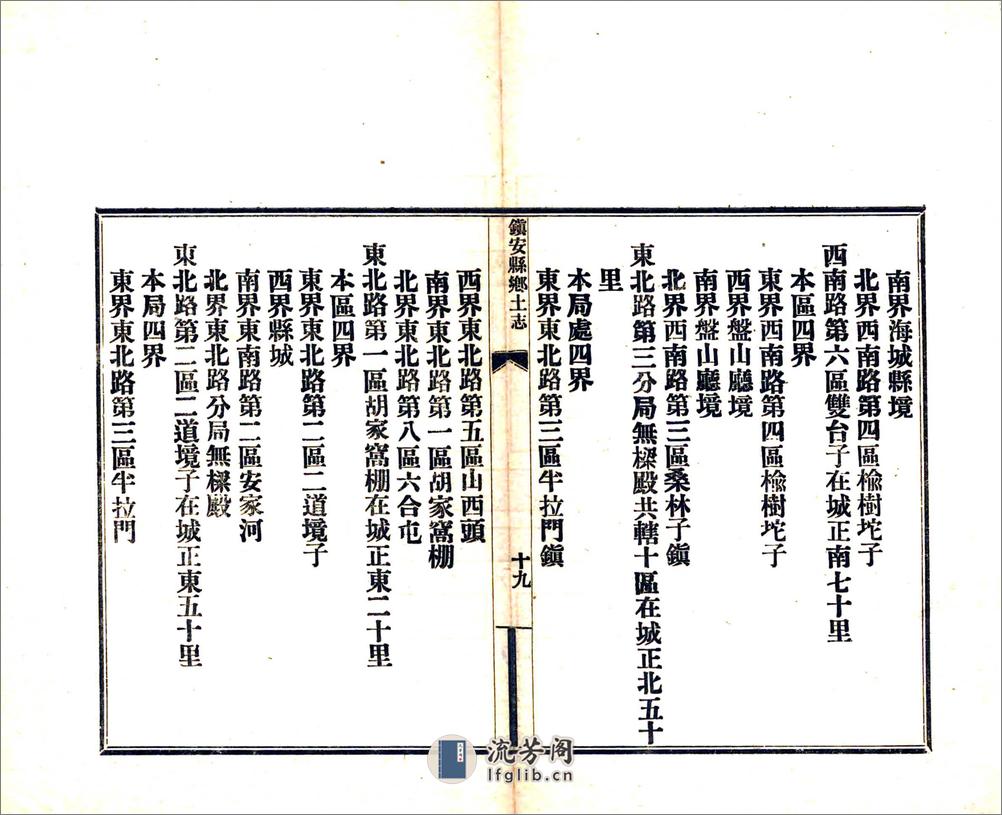 南界海城縣境
北界西南路第四區楡樹坨子
西南路第六區雙台子在城正南七十里
本區四界
東界西南路第四區楡樹坨子
西界盤山廳境
南界盤山廳境
北界西南路第三區桑林子鎮
東北路第三分局無樑殿共轄十區在城正北五十
里
本局處四界
東界東北路第三區半拉門鎮
鎮安縣鄉土志
十九
西界東北路第五區山西頭
南界東北路第一區胡家窩棚
北界東北路第八區六合屯
東北路第一區胡家窩棚在城正東二十里
本區四界
東界東北路第二區二道境子
西界縣城
南界東南路第二區安家河
北界東北路分局無樑殿
東北路第二區二道境子在城正東五十里
本局四界
東界東北路第三區半拉門
流芳阁
lfglib.cn